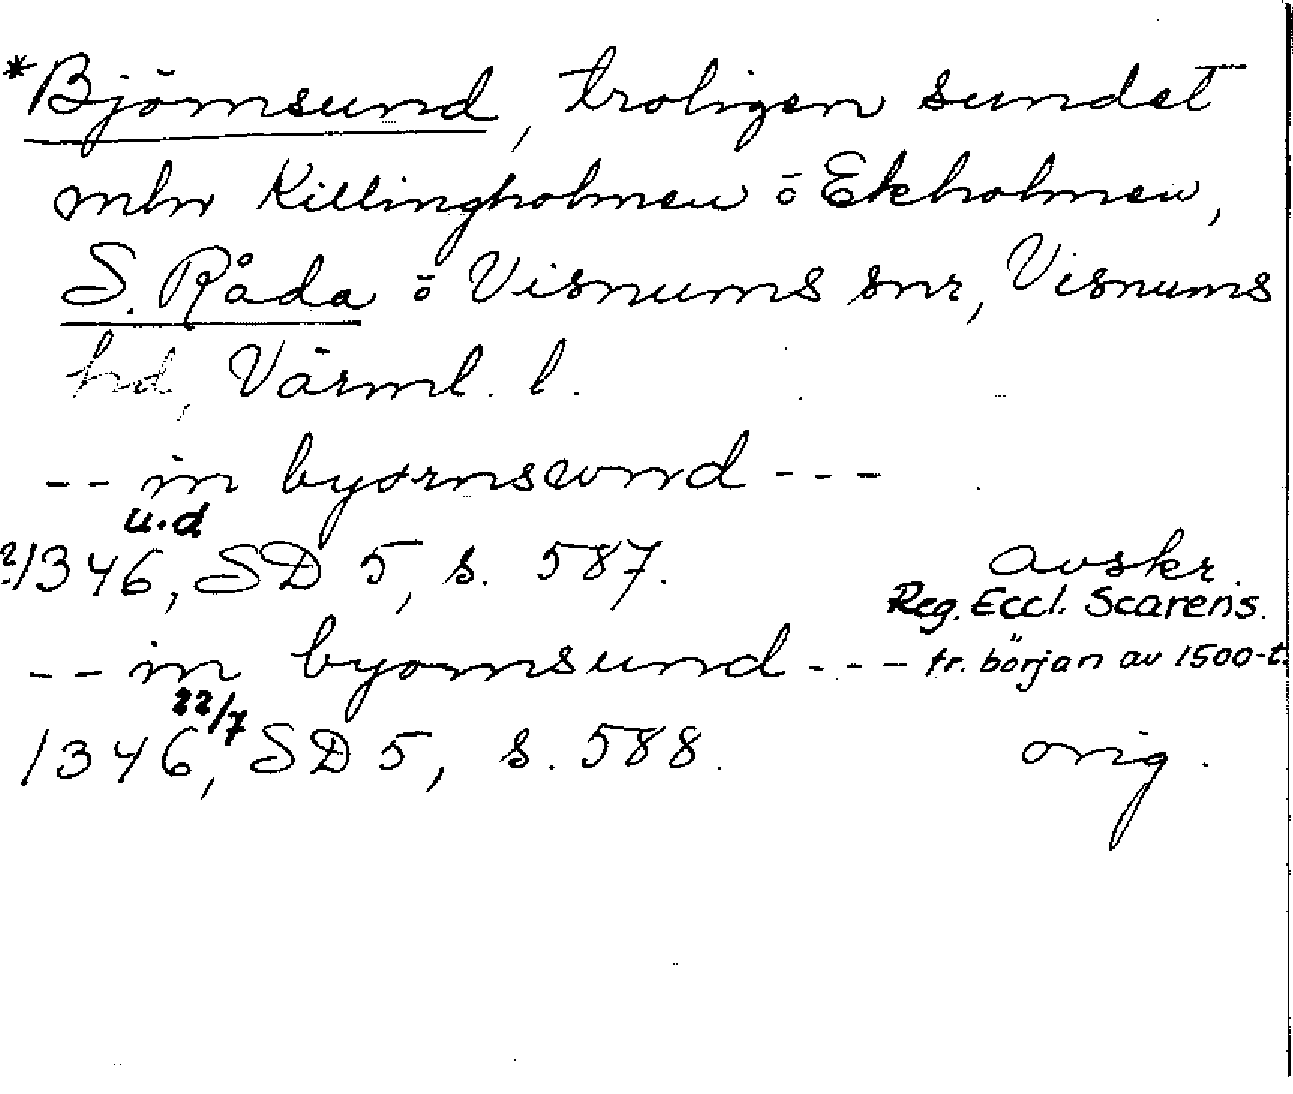 *Björnsund, troligen sundet
mln Killingholmen o Ekholmen,
S. Råda o Visnums snr, Visnums
hd, Värml. l.
-- in byornswnd ---
u.d
?1346, SD 5, s. 587. avskr.
Reg. Eccl. Scarens.
-- in byornsund --- tr. början av 1500-t.
22/7
1346, SD 5, s. 588. orig.